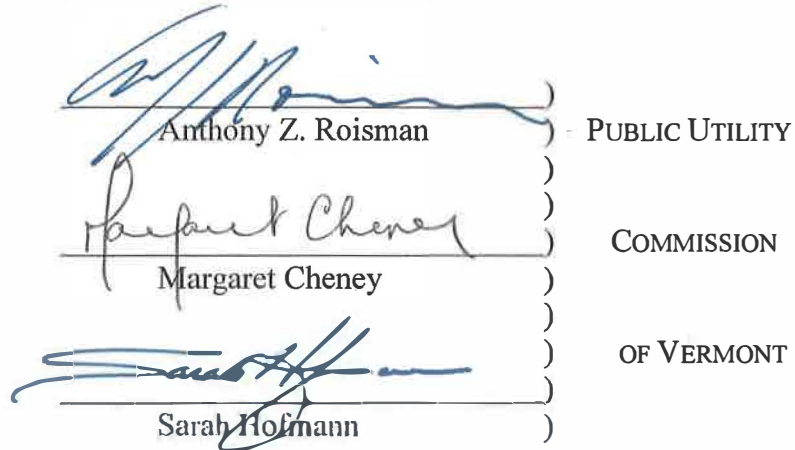 Anthony Z. Roisman
)
) PUBLIC UTILITY
)
)
Margaret Cheney
) COMMISSION
Margaret Cheney
)
)
) OF VERMONT
)
Sarah Hofmann
)